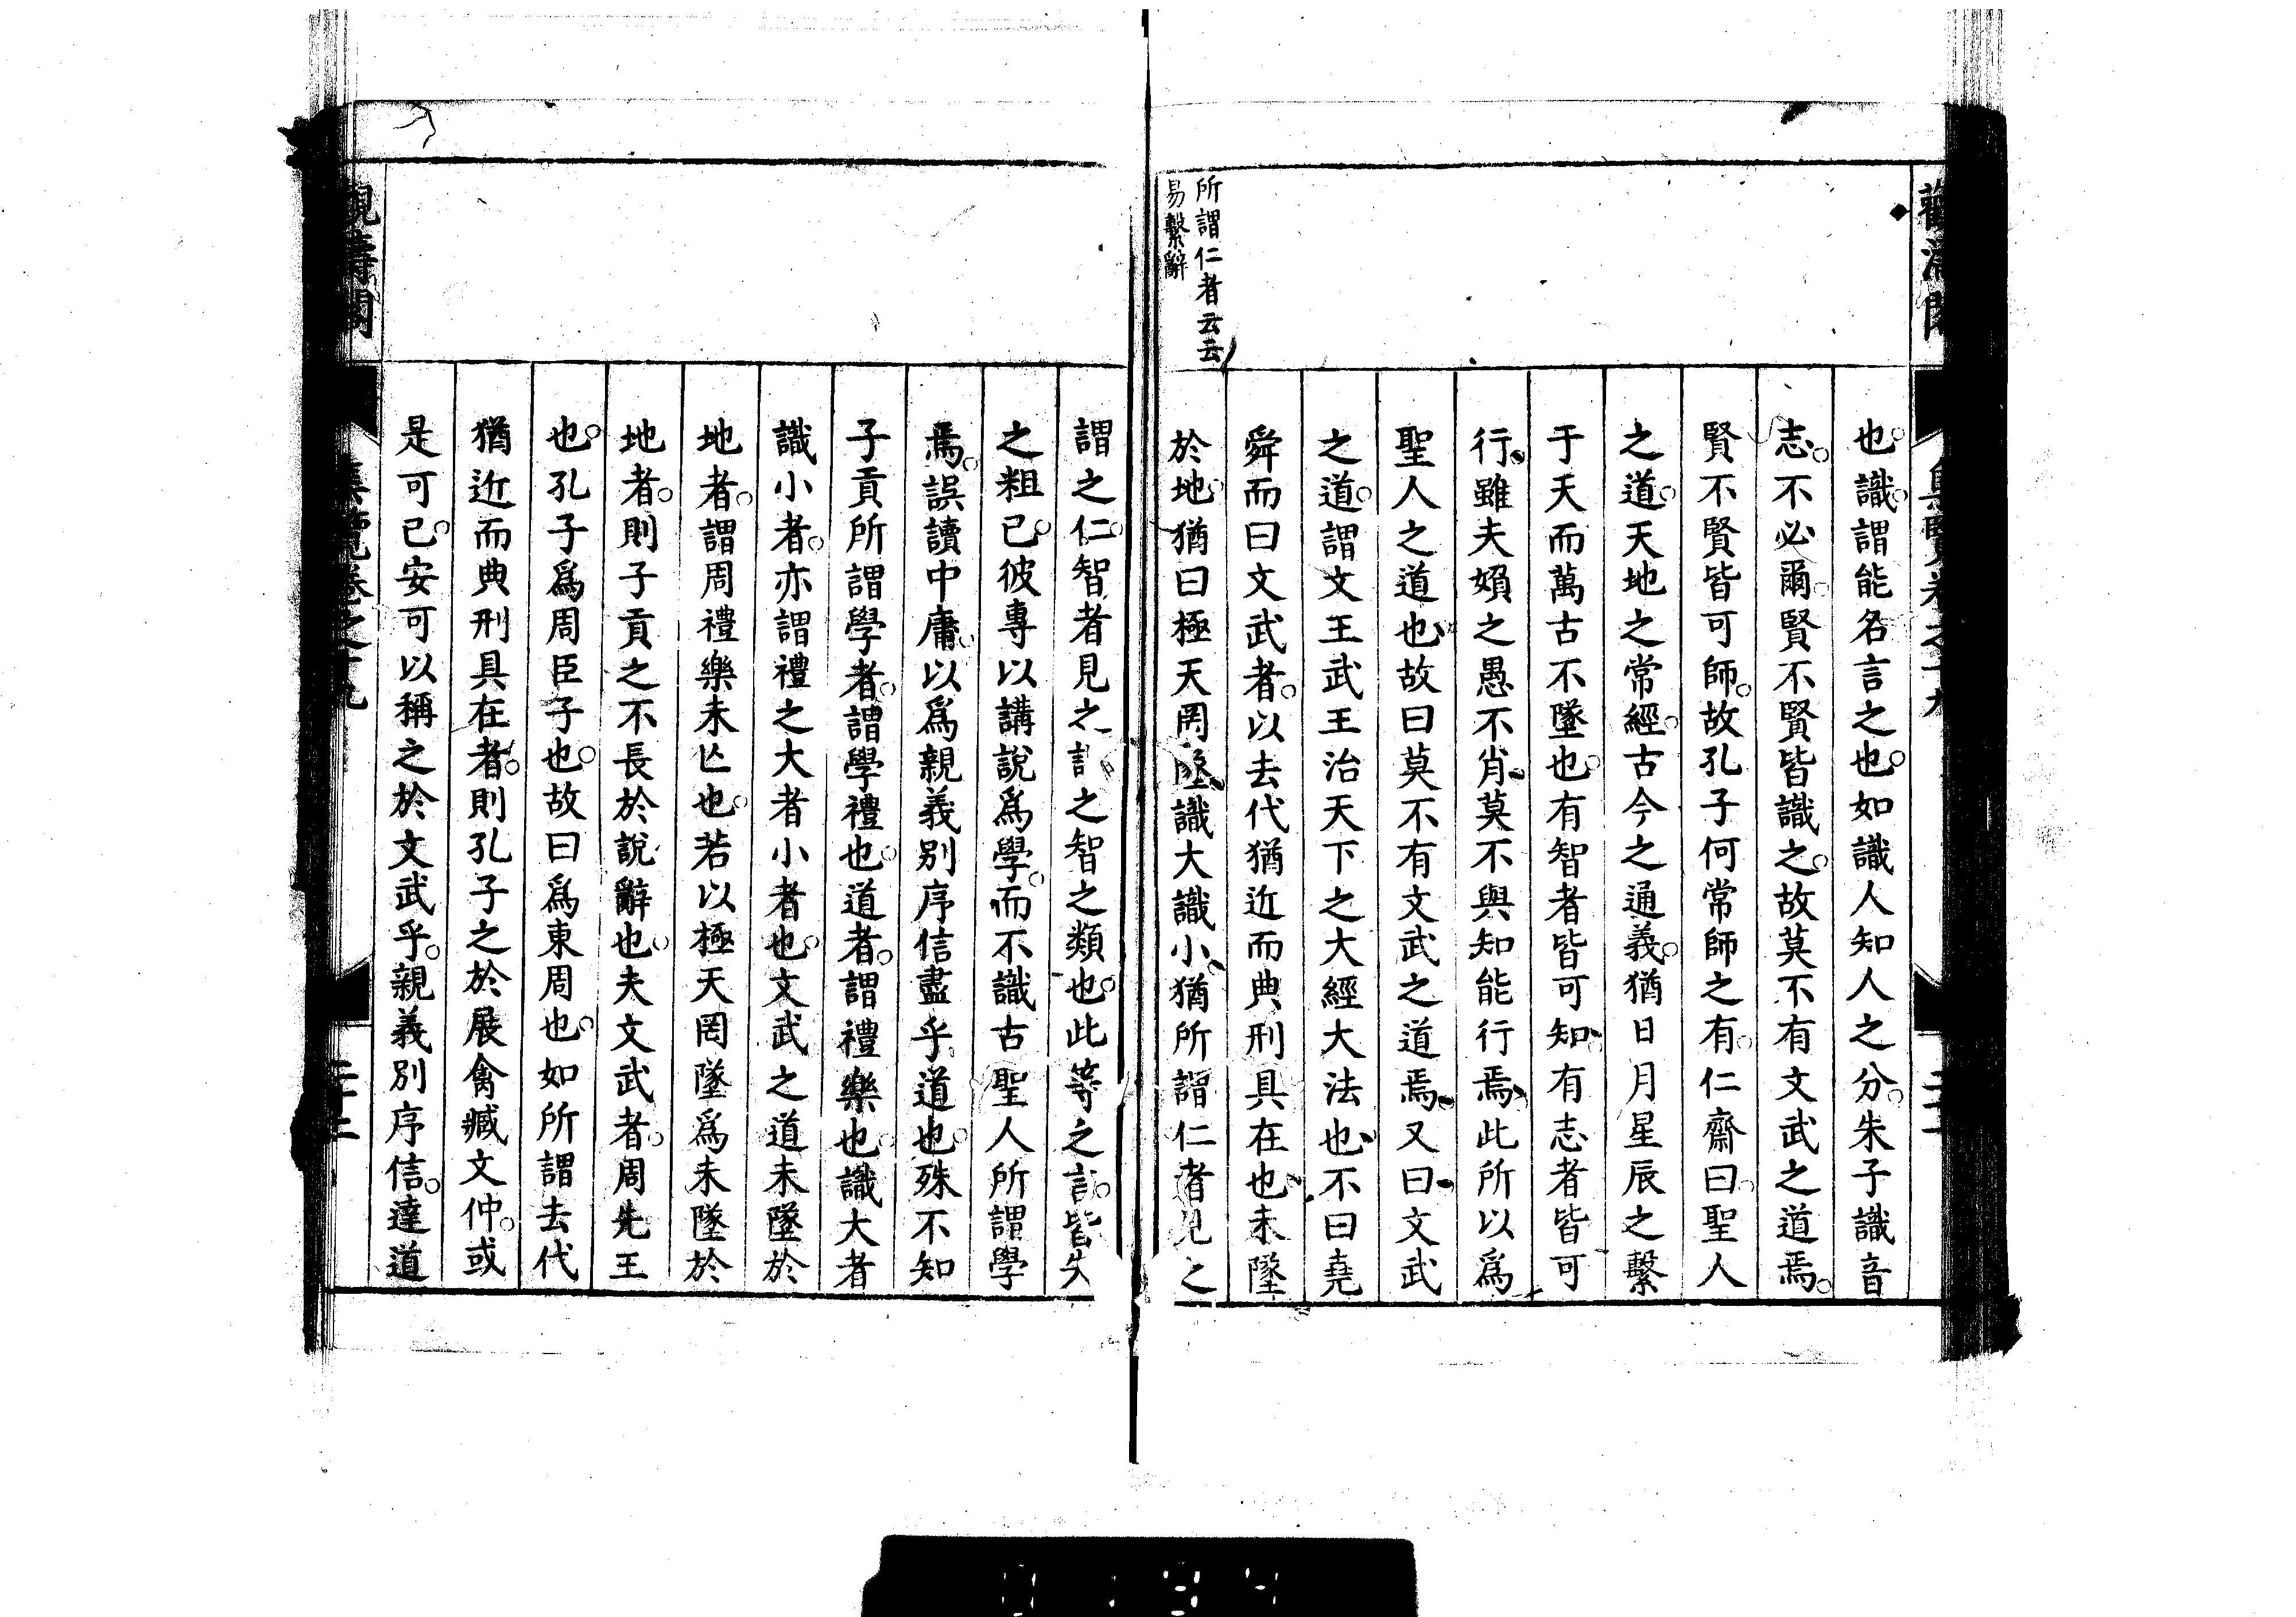 也。識。謂能名言之也。如識人知人之分。朱子識音
志。不必爾。賢不賢皆識之。故莫不有文武之道焉。
賢不賢皆可師。故孔子何常師之有。仁齋曰。聖人
之道。天地之常經。古今之通義。猶日月星辰之繫
于天而萬古不墜也。有智者皆可知。有志者皆可
行。雖夫婦之愚不肖。莫不與知能行焉。此所以爲
聖人之道也。故曰莫不有文武之道焉。又曰。文武
之道。謂文王武王治天下之大經大法也。不曰堯
舜而曰文武者。以去代猶近而典刑具在也。未墜
於地。猶曰極天罔墜。識大識小。猶所謂仁者見之
所謂仁者云云
易繫辭
謂之仁。智者見之謂之智之類也。此等之言。皆失
之粗已。彼專以講說爲學。而不識古聖人所謂學
焉。誤讀中庸。以爲親義別序信盡乎道也。殊不知
子貢所謂學者。謂學禮也。道者。謂禮樂也。識大者
識小者。亦謂禮之大者小者也。文武之道未墜於
地者。謂周禮樂未亡也。若以極天罔墜爲未墜於
地者。則子貢之不長於說辭也。夫文武者。周先王
也。孔子爲周臣子也。故曰爲東周也。如所謂去代
猶近而典刑具在者。則孔子之於展禽臧文仲。或
是可已。安可以稱之於文武乎。親義別序信。達道